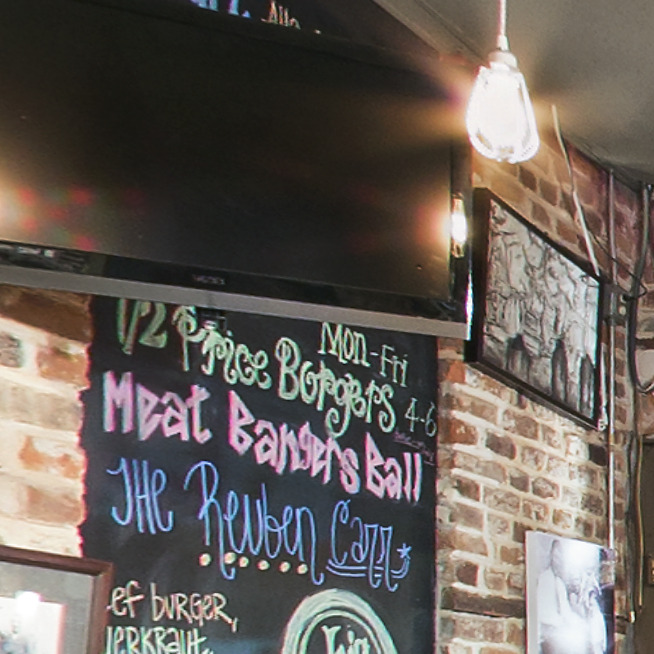 Mon-Fri
1/2 Price Borgers 4-6
Meat Bangers Ball
THE Reuben Carr
ef burger,
erkraut,